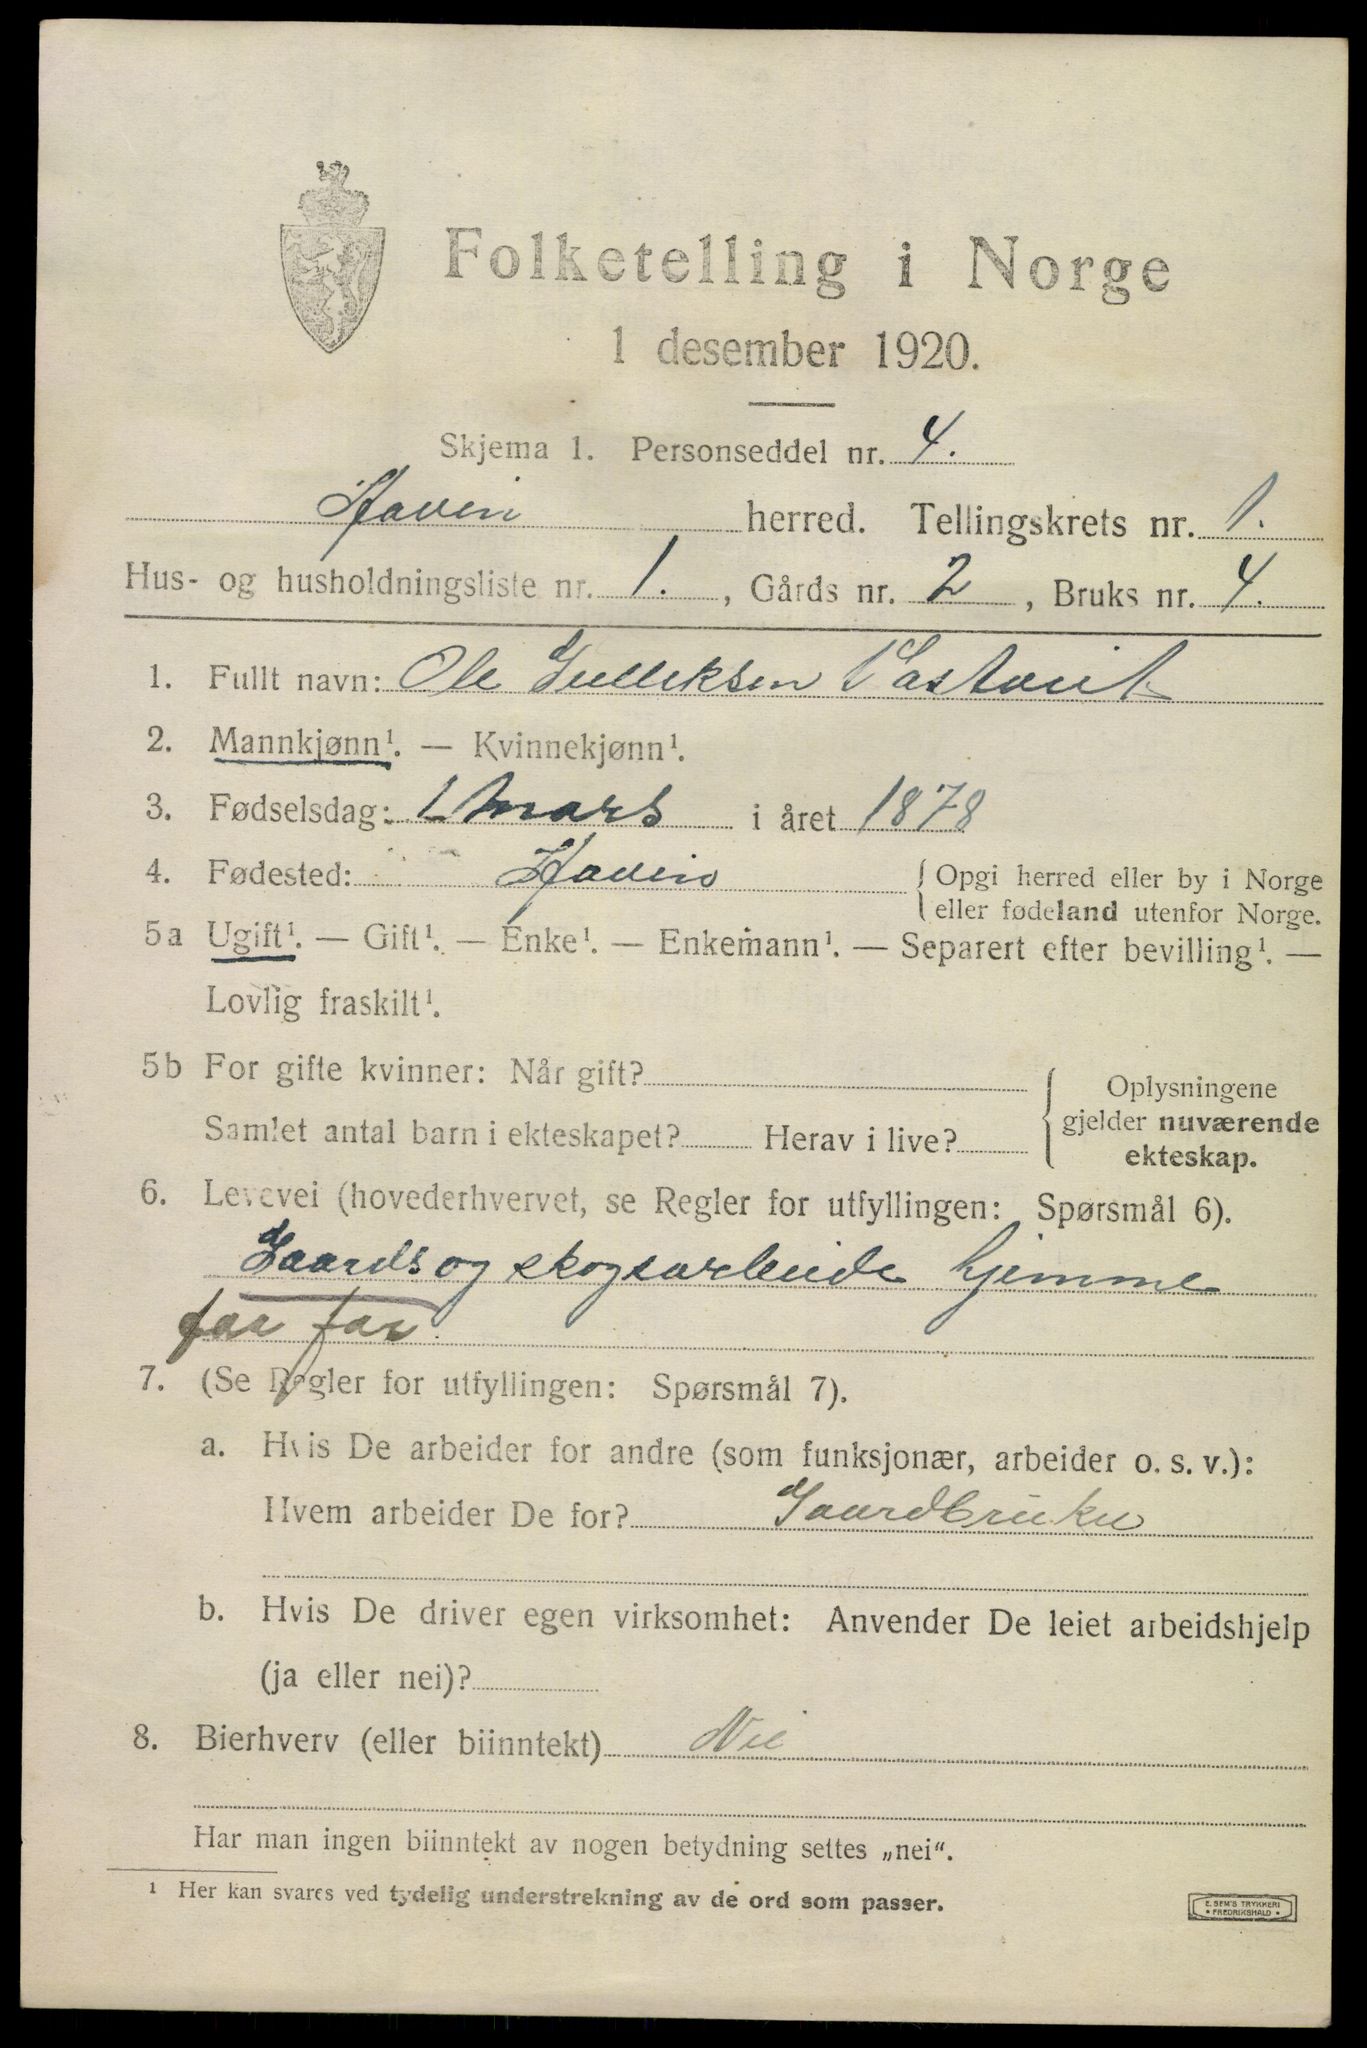 Folketelling i Norge
1 desember 1920.
Skjema 1. Personseddel nr. 4.
Hovin herred. Tellingskrets nr. 1.
Hus- og husholdningsliste nr. 1. , Gårds nr. 2 , Bruks nr. 4.
1. Fullt navn: Ole Gulliksen
2. Mannkjønn¹. — Kvinnekjønn¹.
3. Fødselsdag: 1 mars i året 1878
4. Fødested: Hovin { Opgi herred eller by i Norge
eller fødeland utenfor Norge.
5a Ugift¹. — Gift¹. — Enke¹. — Enkemann¹. — Separert efter bevilling¹. —
Lovlig fraskilt¹.
5b For gifte kvinner: Når gift? { Oplysningene
gjelder nuværende
Samlet antal barn i ekteskapet? Herav i live?
ekteskap.
6. Levevei (hovederhvervet, se Regler for utfyllingen: Spørsmål 6).
Gaards og skogsarbeide hjemme
for far.
7. (Se Regler for utfyllingen: Spørsmål 7).
a. Hvis De arbeider for andre (som funksjonær, arbeider o. s. v.):
Hvem arbeider De for? Gaardbruker
b. Hvis De driver egen virksomhet: Anvender De leiet arbeidshjelp
(ja eller nei)?
8. Bierhverv (eller biinntekt) Nei
Har man ingen biinntekt av nogen betydning settes „nei“.
¹ Her kan svares ved tydelig understrekning av de ord som passer.
E. SEM'S TRYKKERI
* FREDRIKSHALD *